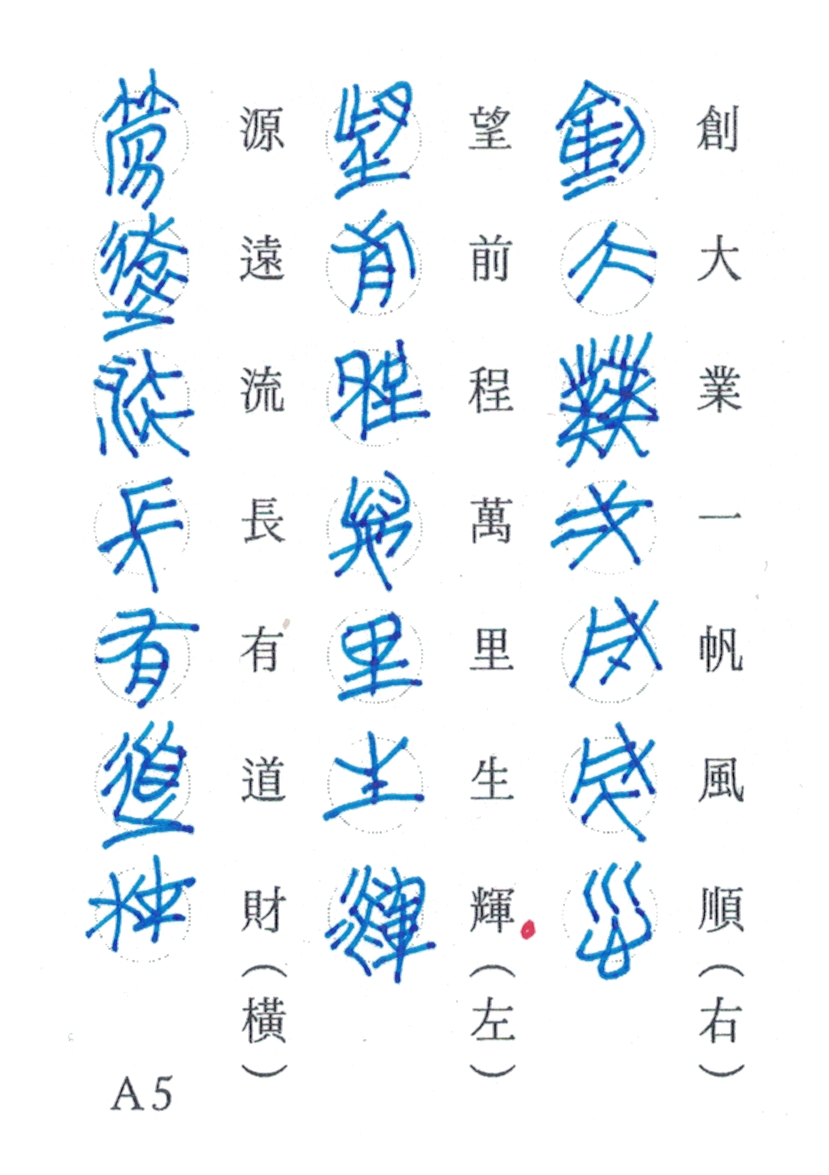 創大業一帆風順（右）
望前程萬里生輝（左）
源遠流長有道財（橫）
A5